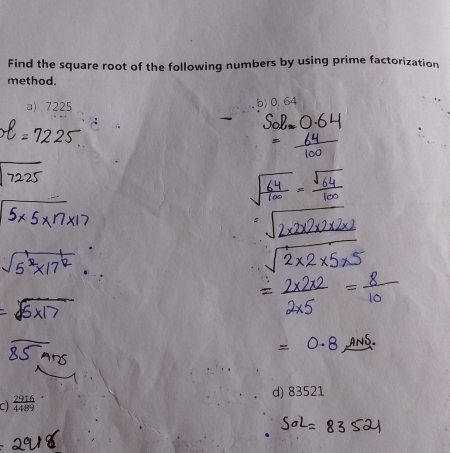 Find the square root of the following numbers by using prime factorization
method.
a) 7225
ol = 7225
√7225
√5×5×17×17
√5²×17²
= 5×17
85 Ans
b) 0, 64
Sol = 0.64
= 64
100
√64/100 = √64/100
= √2×2×2×2×2×2
√2×2×5×5
= 2×2×2 = 8
2×5 10
= 0.8 ANS.
c) 2916
4489
= 2916
d) 83521
SOL = 83521